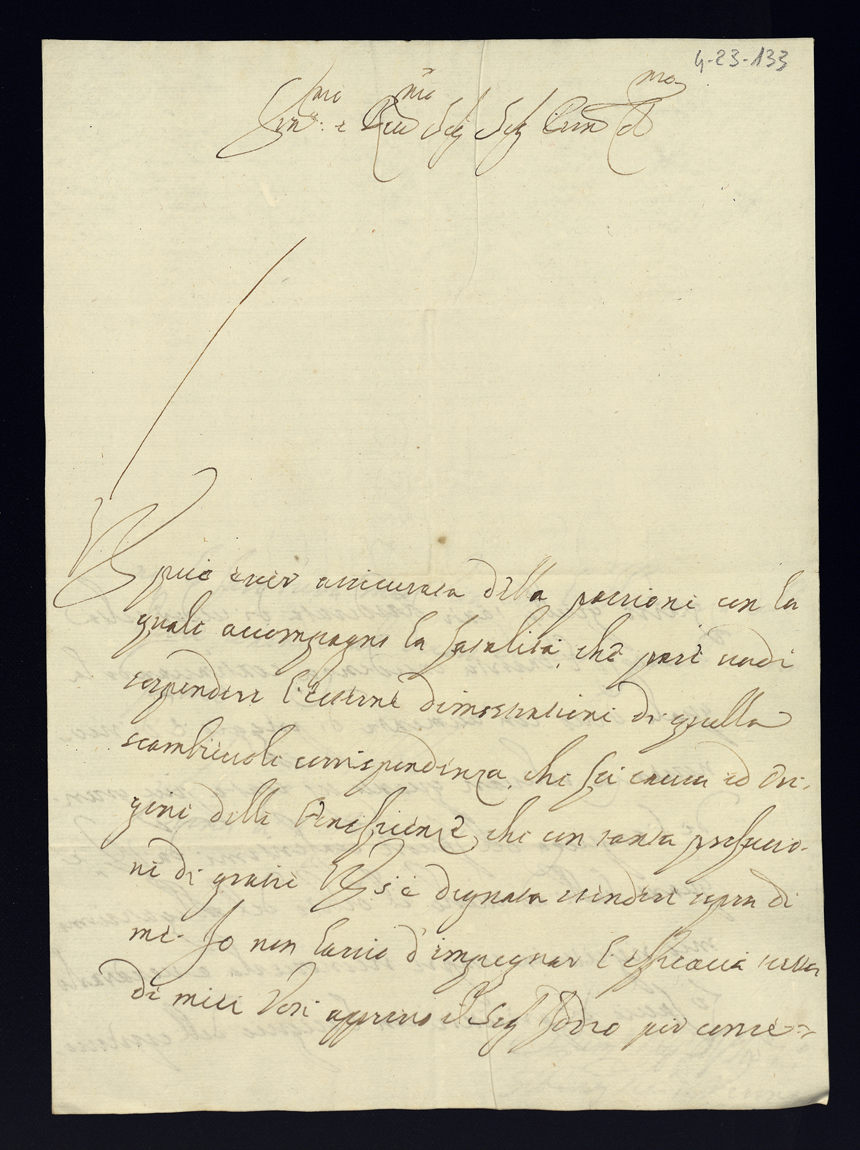 4-23-133
Em.mo e Re.mo Sig Sig Pron Col.mo
V può esser assicurata della passione con la
quale accompagno la fatalità, che pare vadi
sospendere l'esterne dimostrationi di quella
scambievole corrispondenza, che fù causa ed ori-
gine delle beneficenze che con tanta profusio-
ne di gratie V s'è degnata estendere sopra di
me. Io non lascio d'impegnar l'efficacia tutta
di miei Voti appresso il Sig Iddio per conse=